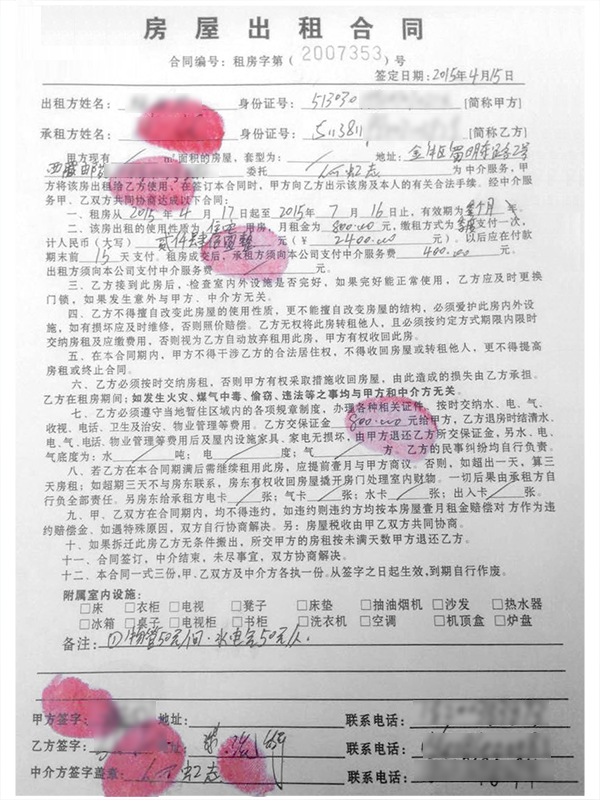 房屋出租合同
合同编号：租房字第（2007353）号
签定日期：2015年4月15日
出租方姓名： 身份证号：513030 [简称甲方]
承租方姓名： 身份证号：511381 [简称乙方]
甲方现有 m²面积的房屋，套型为： 地址：
委托 为中介服务，甲
方将该房出租给乙方使用。在签订本合同时，甲方向乙方出示该房及本人的有关合法手续。经中介服
务甲、乙双方共同协商达成以下合同：
一、租房从2015年4月17日起至2015年7月16日止，有效期为 年。
二、该房出租的使用性质为 用房，月租金为800.00元，缴租方式为 支付一次，
计人民币（大写） 元（¥2400.00元）。以后应在付款
期末前15天支付。租房成交后，承租方须向本公司支付中介服务费400.00元，
出租方须向本公司支付中介服务费 元。
三、乙方接到此房后，检查室内外设施是否完好，如果完好能正常使用，乙方应及时更换
门锁，如果发生意外与甲方、中介方无关。
四、乙方不得擅自改变此房屋的使用性质，更不能擅自改变房屋的结构，必须爱护此房内外设
施，如有损坏应及时维修，否则照价赔偿。乙方无权将此房转租他人，且必须按约定方式期限内限时
交纳房租及应缴费用，否则视为乙方自动放弃租用此房，甲方有权收回此房。
五、在本合同期内，甲方不得干涉乙方的合法居住权，不得收回房屋或转租他人，更不得提高
房租或终止合同。
六、乙方必须按时交纳房租，否则甲方有权采取措施收回房屋，由此造成的损失由乙方承担。
乙方在租房期间：如发生火灾、煤气中毒、偷窃、违法等之事均与甲方和中介方无关。
七、乙方必须遵守当地暂住区域内的各项规章制度，办理各种相关证件，按时交纳水、电、气、
收视、电话、卫生及治安、物业管理等费用。乙方交保证金800.00元给甲方，乙方退房时结清水、
电、气、电话、物业管理等费用后及屋内设施家具、家电无损坏，由甲方退还乙方所交保证金，另水、电、
气底度为：水 吨；电 度；气 方。乙方的民事纠纷均自行负责。
八、若乙方在本合同期满后需继续租用此房，应提前壹月与甲方商议。否则，如超出一天，算三
天房租；如超期三天不与房东联系，房东有权收回房屋撬开房门处理室内财物。一切后果由承租方自
行负全部责任。另房东给承租方电卡 张；气卡 张；水卡 张；出入卡 张。
九、甲、乙双方在合同期内，均不得违约，如违约则违约方均按本房屋壹月租金赔偿对方作为违
约赔偿金。如遇特殊原因，双方自行协商解决。另：房屋税收由甲乙双方共同协商。
十、如果拆迁此房乙方无条件搬出，所交甲方的房租按未满天数甲方退还乙方。
十一、合同签订，中介结束，未尽事宜，双方协商解决。
十二、本合同一式三份，甲、乙双方及中介方各执一份。从签字之日起生效，到期自行作废。
附属室内设施：
□床 □衣柜 □电视 □凳子 □床垫 □抽油烟机 □沙发 □热水器
□冰箱 □桌子 □电视柜 □书柜 □洗衣机 □空调 □机顶盒 □炉盘
备注：①物管50元/间·水电气50元/人.
甲方签字： 地址： 联系电话：
乙方签字： 地址： 联系电话：
中介方签字盖章： 联系电话：